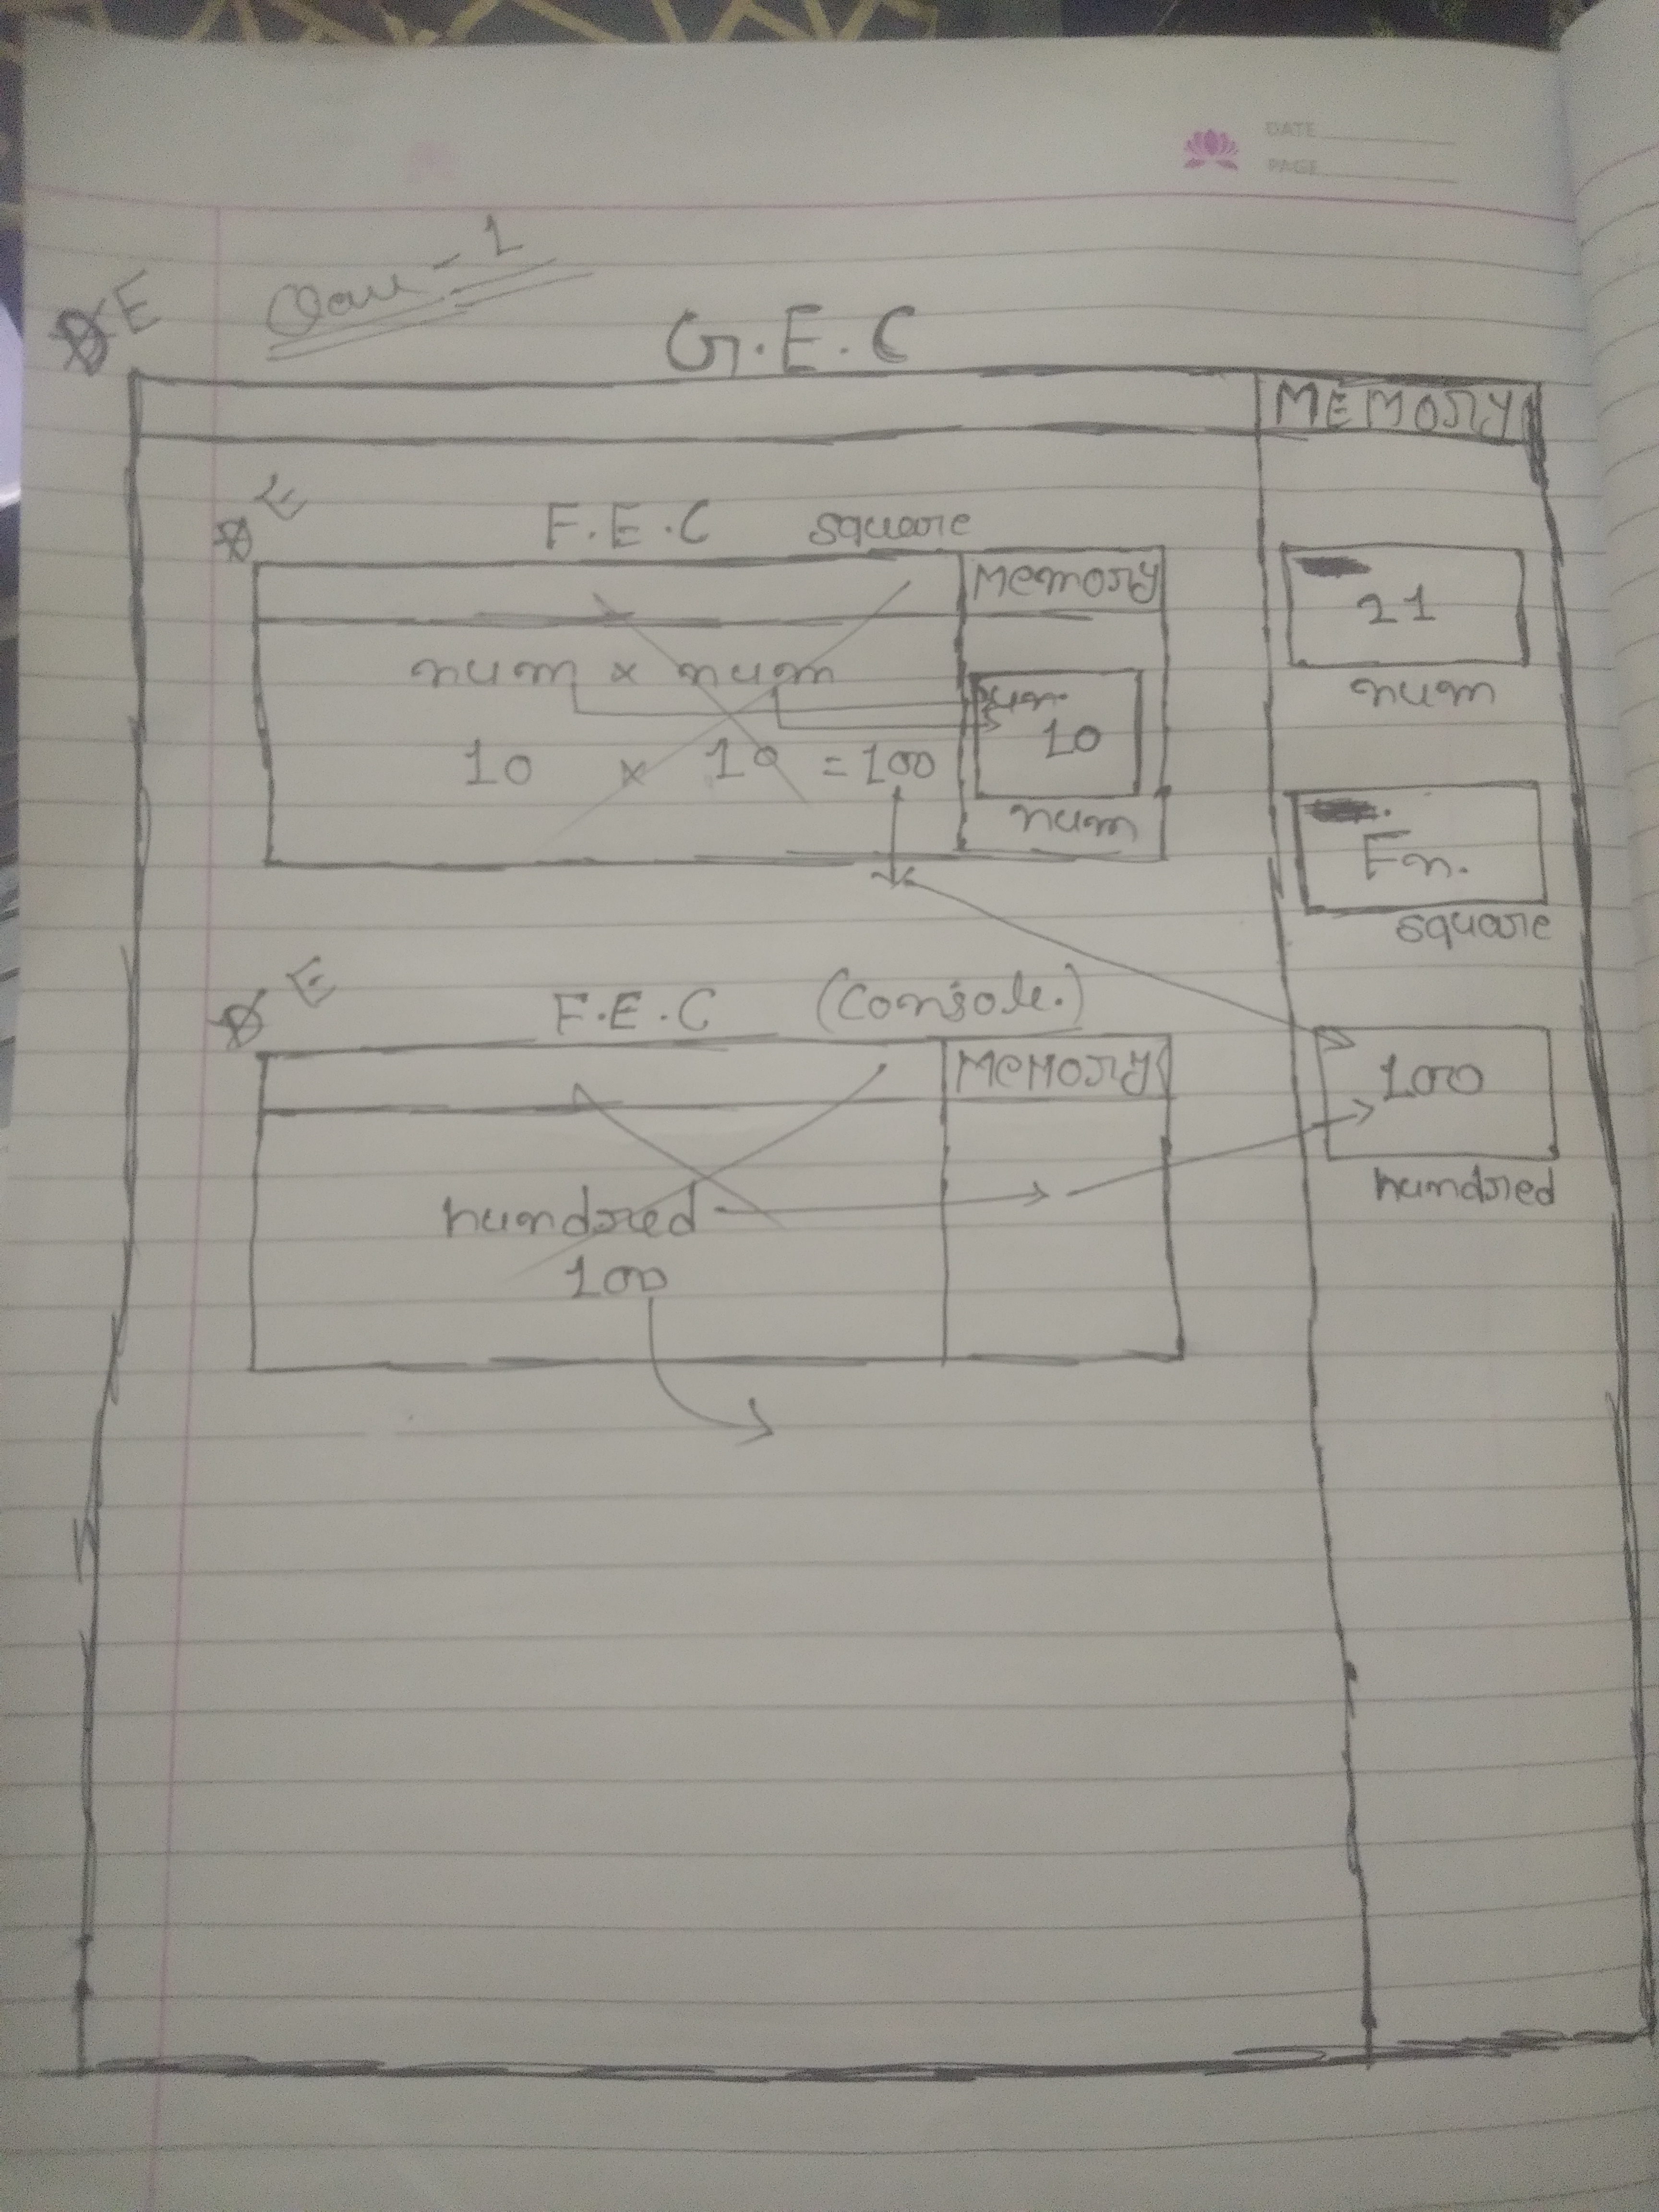 DATE
PAGE
E
G.E.C
MEMORY
E
F.E.C square
Memory
21
num
num x num
10
10 x 10 = 100
num
Fn.
square
E
F.E.C (Console.)
MEMORY
100
hundred
hundred
100